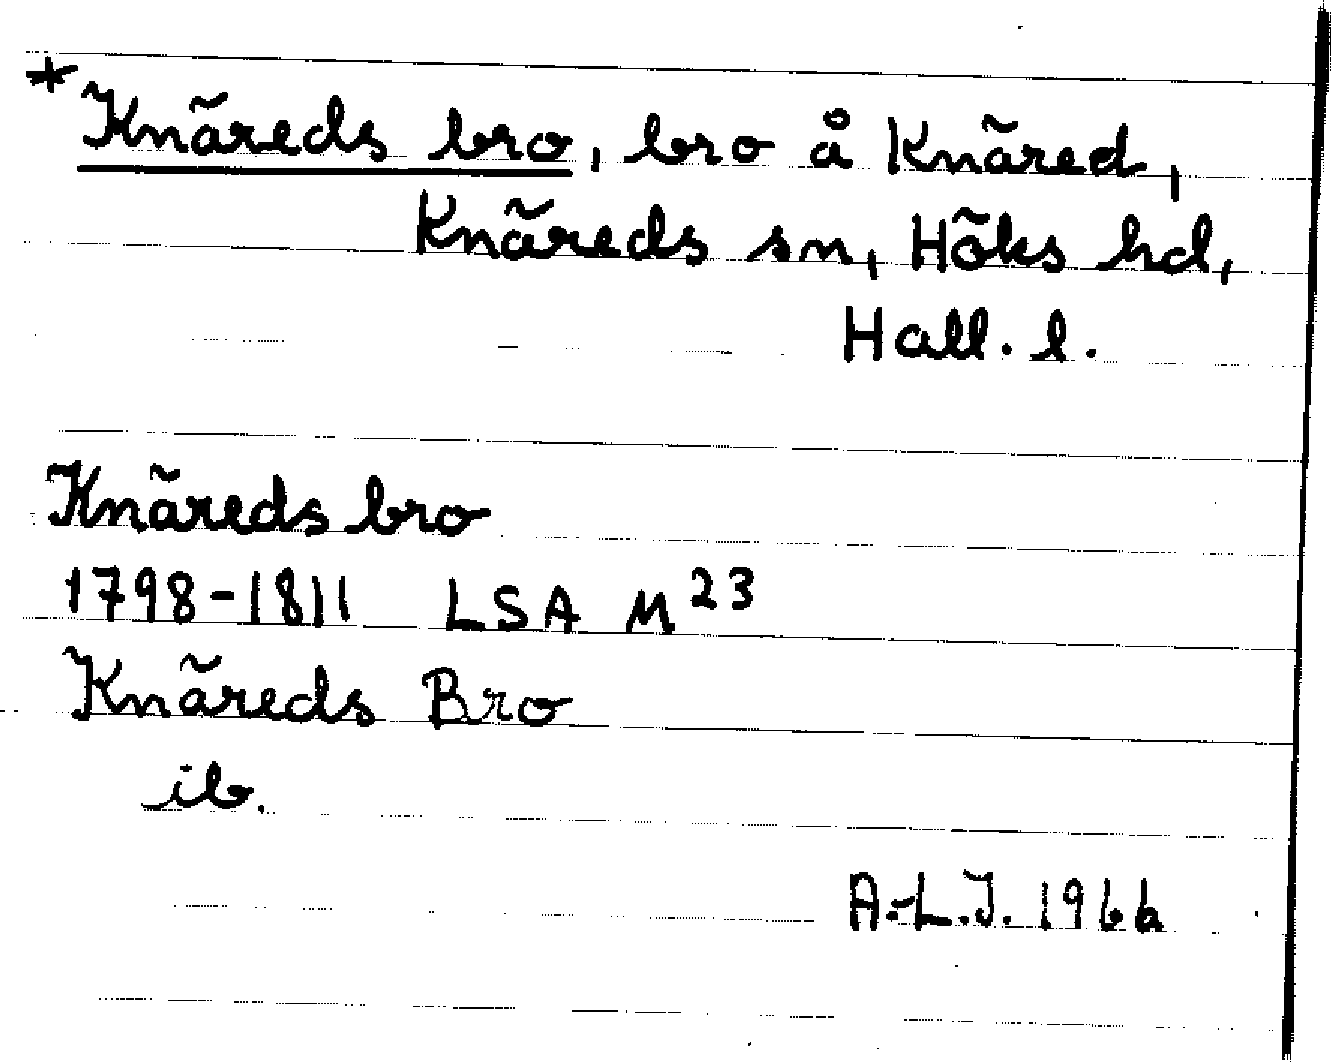 *Knäreds bro, bro å Knäred,
Knäreds sn, Höks hd,
Hall. l.
Knäreds bro
1798-1811 LSA M²³
Knäreds Bro
ib.
A.-L.J. 1966